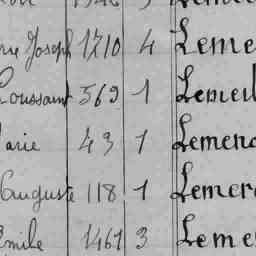 Joseph 1710 4 Leme
Toussaint 369 1 Lemeil
Marie 43 1 Lemerc
Auguste 118 1 Lemerc
Emile 1461 3 Leme